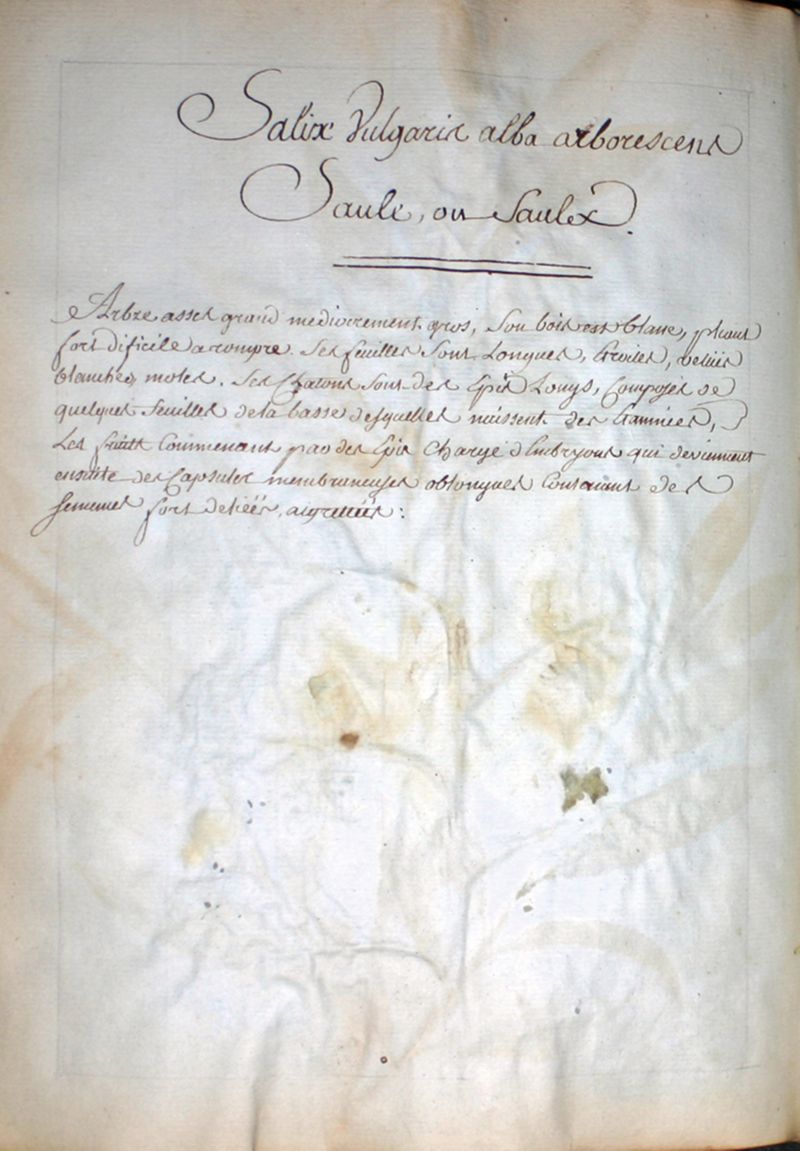 Salix Vulgaris alba arborescens
Saule, ou Saulx.
Arbre asses grand mediocrement gros, Son bois est blanc, pliant
fort dificile a rompre. Ses feuilles Sont Longues, Etroites, veluës
blanches, moles. Ses Chatons Sont des Epis Longs, Composes de
quelques feuilles de la basse desquelles naissent des Etamines,
Les fruits Commencent par des Epis Chargé d'Embryons qui deviennent
ensuite des Capsules membraneuses oblongues Contenant des
semences fort deliées, aigrettées :